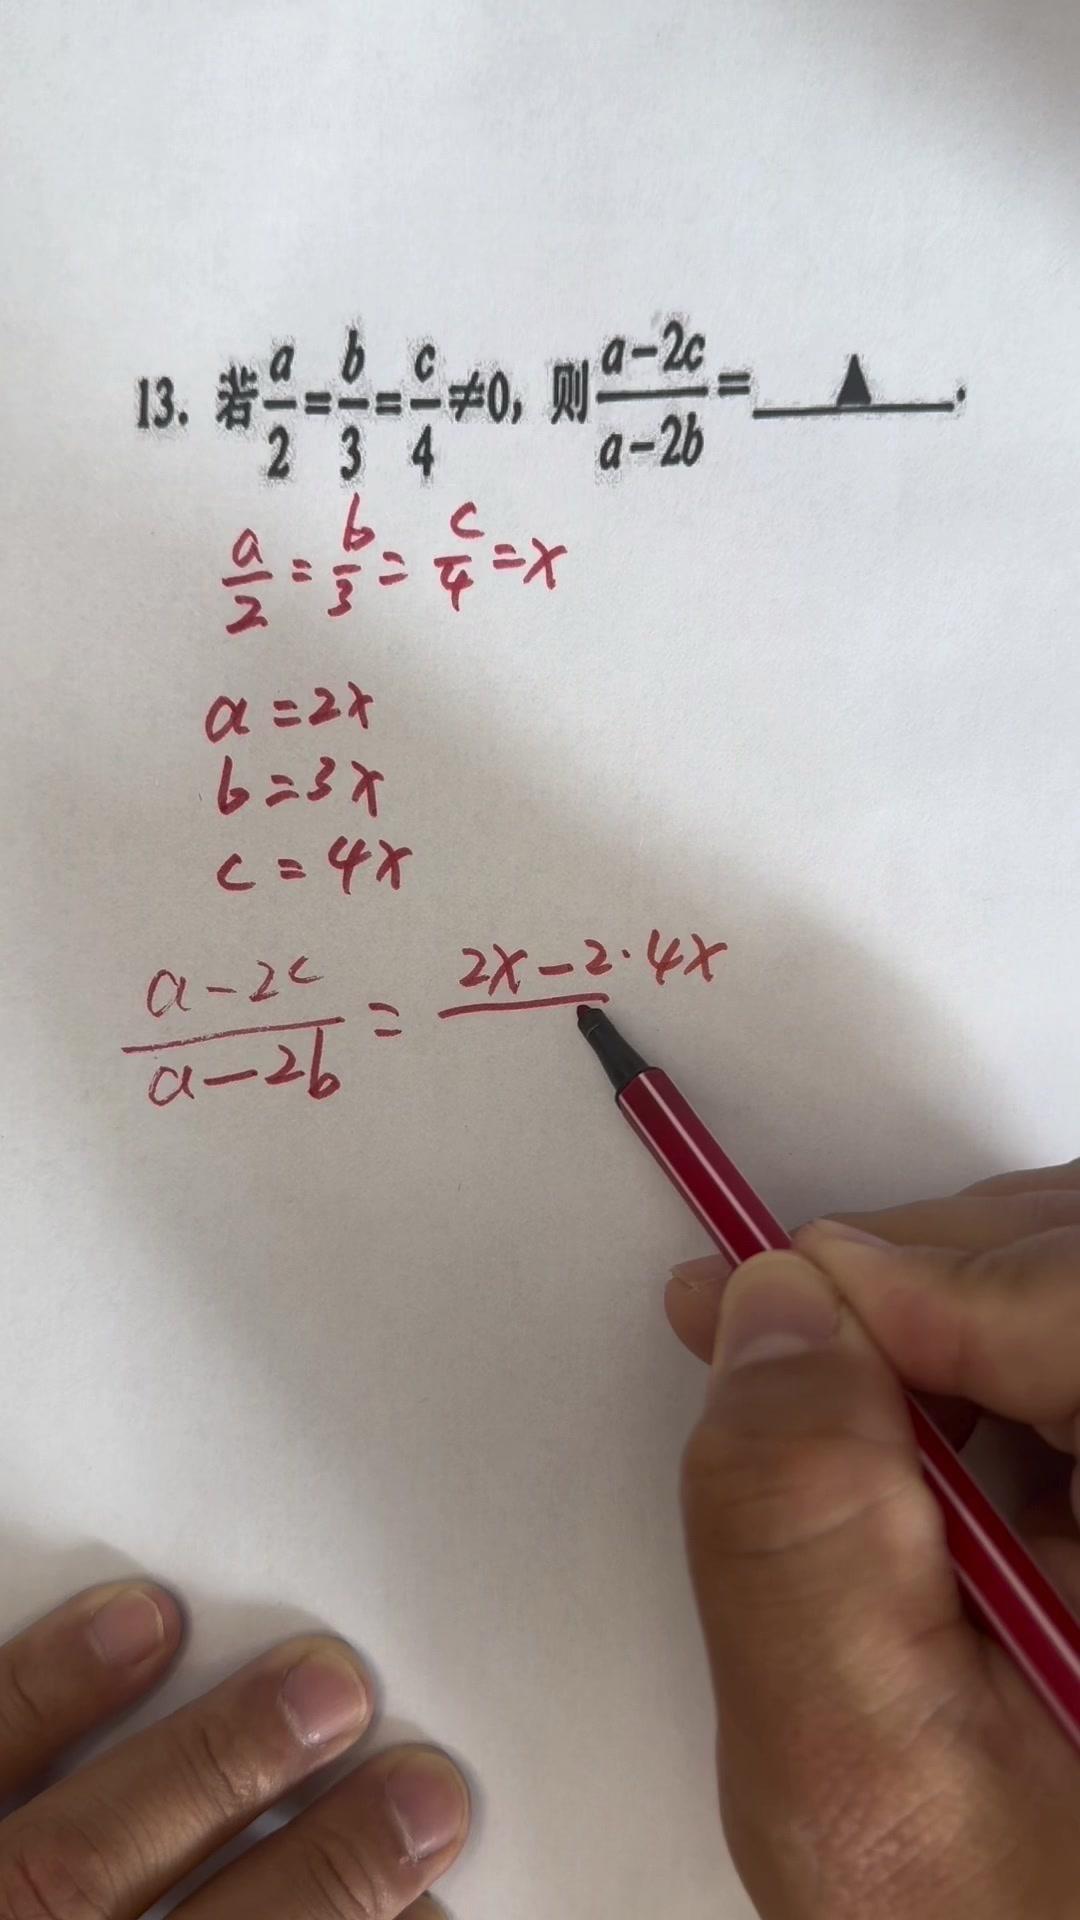 13. 若a/2=b/3=c/4≠0, 则(a-2c)/(a-2b)=____▲____.
a/2=b/3=c/4=x
a=2x
b=3x
c=4x
(a-2c)/(a-2b)=2x-2·4x